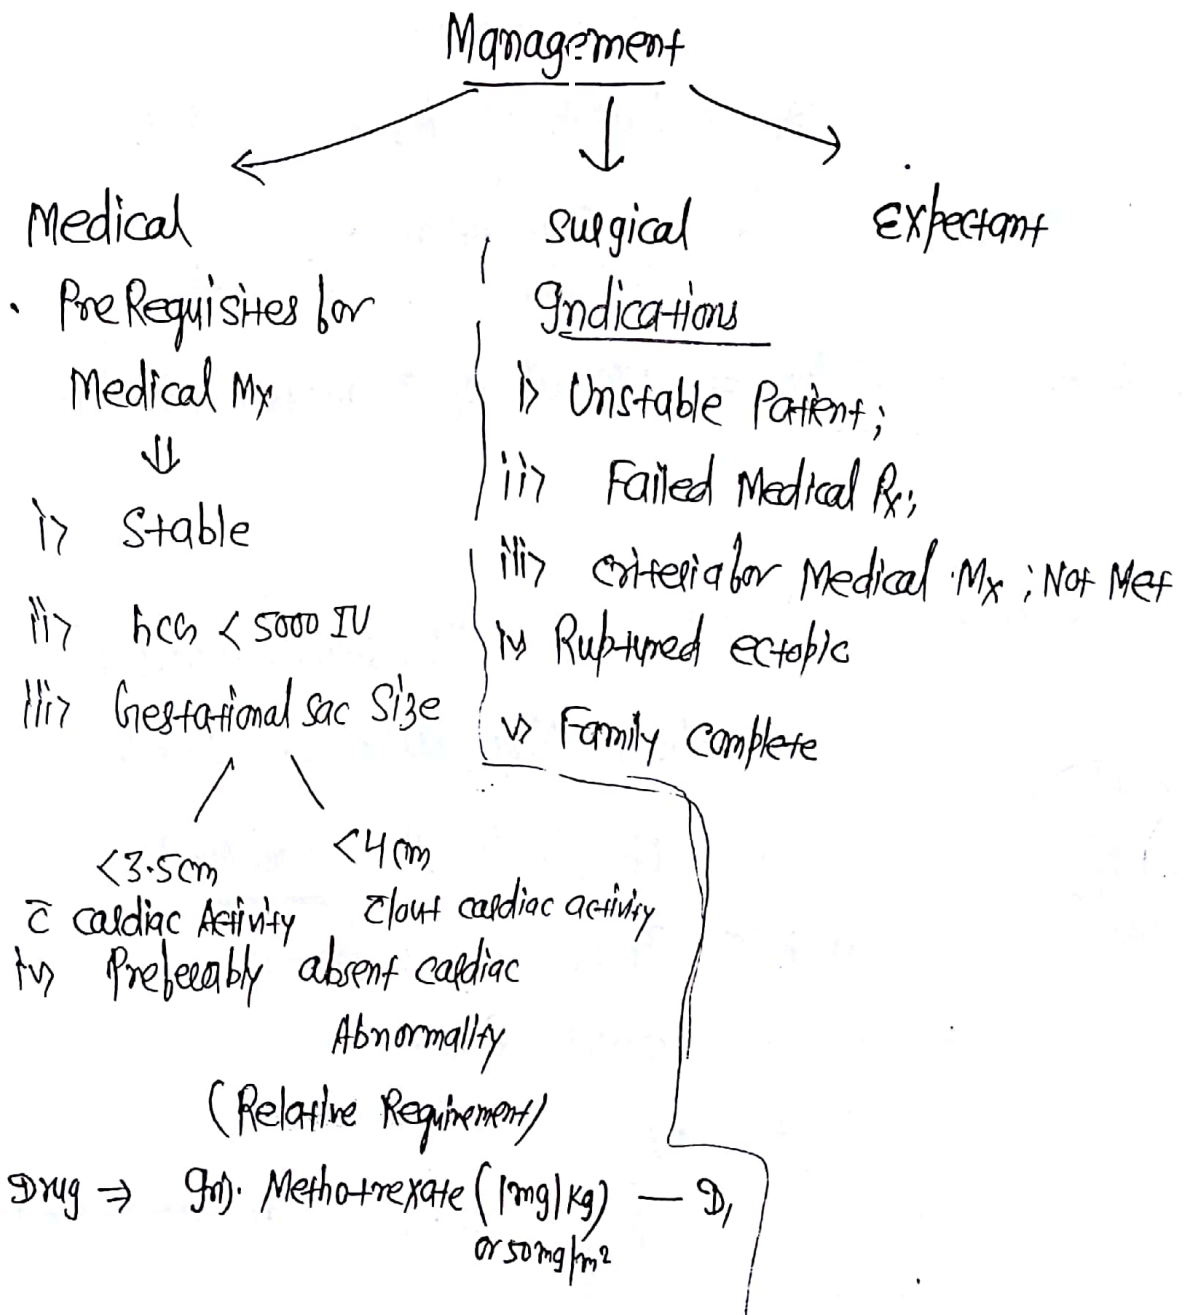 Management
Medical
• PreRequisites for
Medical Mx
⇓
i> Stable
ii> hCG < 5000 IU
iii> Gestational sac Size
<3.5cm
c̄ cardiac Activity
<4cm
c̄/out cardiac activity
iv> Preferably absent cardiac
Abnormality
(Relative Requirement)
Drug ⇒ Inj. Methotrexate (1mg/kg) — D1
or 50mg/m²
Surgical
Indications
i> Unstable Patient;
ii> Failed Medical Rx;
iii> criteria for Medical Mx; Not Met
iv> Ruptured ectopic
v> Family complete
Expectant